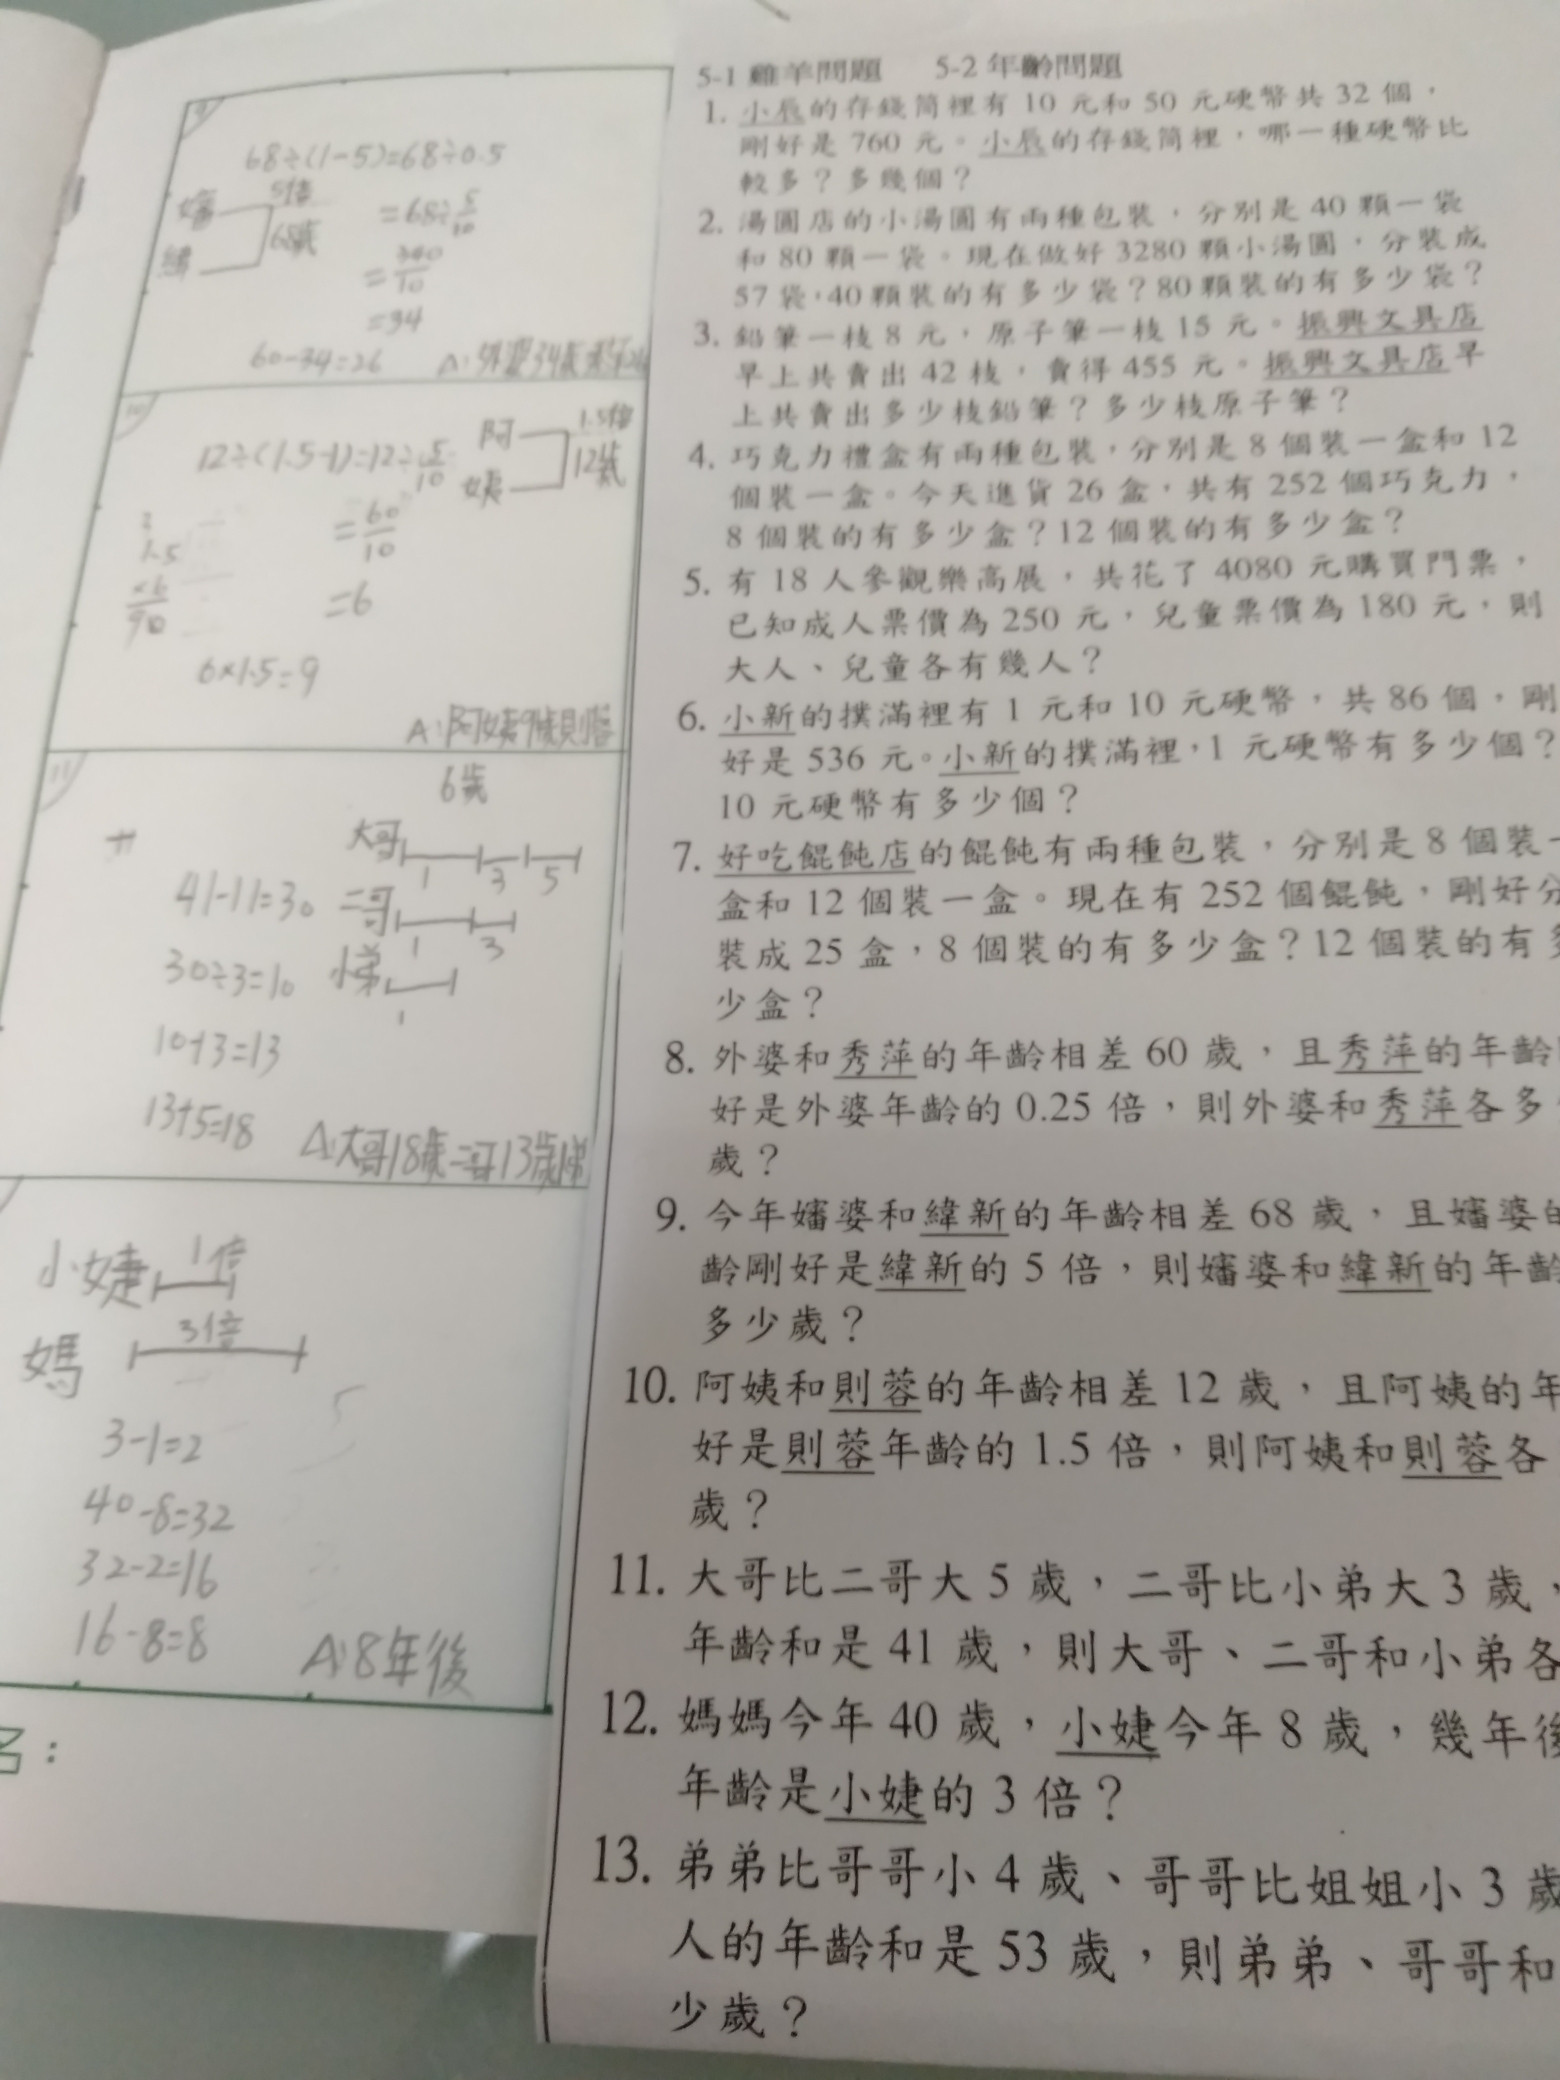 9
68÷(1-5)=68÷0.5
嬸 5倍
緯 68歲
=68÷5/10
=340/10
=34
60-34=26
10
12÷(1.5-1)=12÷5/10
阿 1.5倍
姨 12歲
=60/10
=6
1.5
×6
90
6×1.5=9
A:阿姨9歲則蓉
6歲
11
41-11=30
30÷3=10
10+3=13
13+5=18
大哥 1 3 5
二哥 1 3
小弟 1
A:大哥18歲二哥13歲小弟
小婕 1倍
媽 3倍
3-1=2
40-8=32
32-2=16
16-8=8
A:8年後
名：
5-1 雞羊問題 5-2 年齡問題
1. 小辰的存錢筒裡有 10 元和 50 元硬幣共 32 個，
剛好是 760 元。小辰的存錢筒裡，哪一種硬幣比
較多？多幾個？
2. 湯圓店的小湯圓有兩種包裝，分別是 40 顆一袋
和 80 顆一袋。現在做好 3280 顆小湯圓，分裝成
57 袋，40 顆裝的有多少袋？80 顆裝的有多少袋？
3. 鉛筆一枝 8 元，原子筆一枝 15 元。振興文具店
早上共賣出 42 枝，賣得 455 元。振興文具店早
上共賣出多少枝鉛筆？多少枝原子筆？
4. 巧克力禮盒有兩種包裝，分別是 8 個裝一盒和 12
個裝一盒。今天進貨 26 盒，共有 252 個巧克力，
8 個裝的有多少盒？12 個裝的有多少盒？
5. 有 18 人參觀樂高展，共花了 4080 元購買門票，
已知成人票價為 250 元，兒童票價為 180 元，則
大人、兒童各有幾人？
6. 小新的撲滿裡有 1 元和 10 元硬幣，共 86 個，剛
好是 536 元。小新的撲滿裡，1 元硬幣有多少個？
10 元硬幣有多少個？
7. 好吃餛飩店的餛飩有兩種包裝，分別是 8 個裝一
盒和 12 個裝一盒。現在有 252 個餛飩，剛好分
裝成 25 盒，8 個裝的有多少盒？12 個裝的有多
少盒？
8. 外婆和秀萍的年齡相差 60 歲，且秀萍的年齡
好是外婆年齡的 0.25 倍，則外婆和秀萍各多
歲？
9. 今年嬸婆和緯新的年齡相差 68 歲，且嬸婆的
齡剛好是緯新的 5 倍，則嬸婆和緯新的年齡
多少歲？
10. 阿姨和則蓉的年齡相差 12 歲，且阿姨的年
好是則蓉年齡的 1.5 倍，則阿姨和則蓉各
歲？
11. 大哥比二哥大 5 歲，二哥比小弟大 3 歲，
年齡和是 41 歲，則大哥、二哥和小弟各
12. 媽媽今年 40 歲，小婕今年 8 歲，幾年後
年齡是小婕的 3 倍？
13. 弟弟比哥哥小 4 歲、哥哥比姐姐小 3 歲
人的年齡和是 53 歲，則弟弟、哥哥和
少歲？